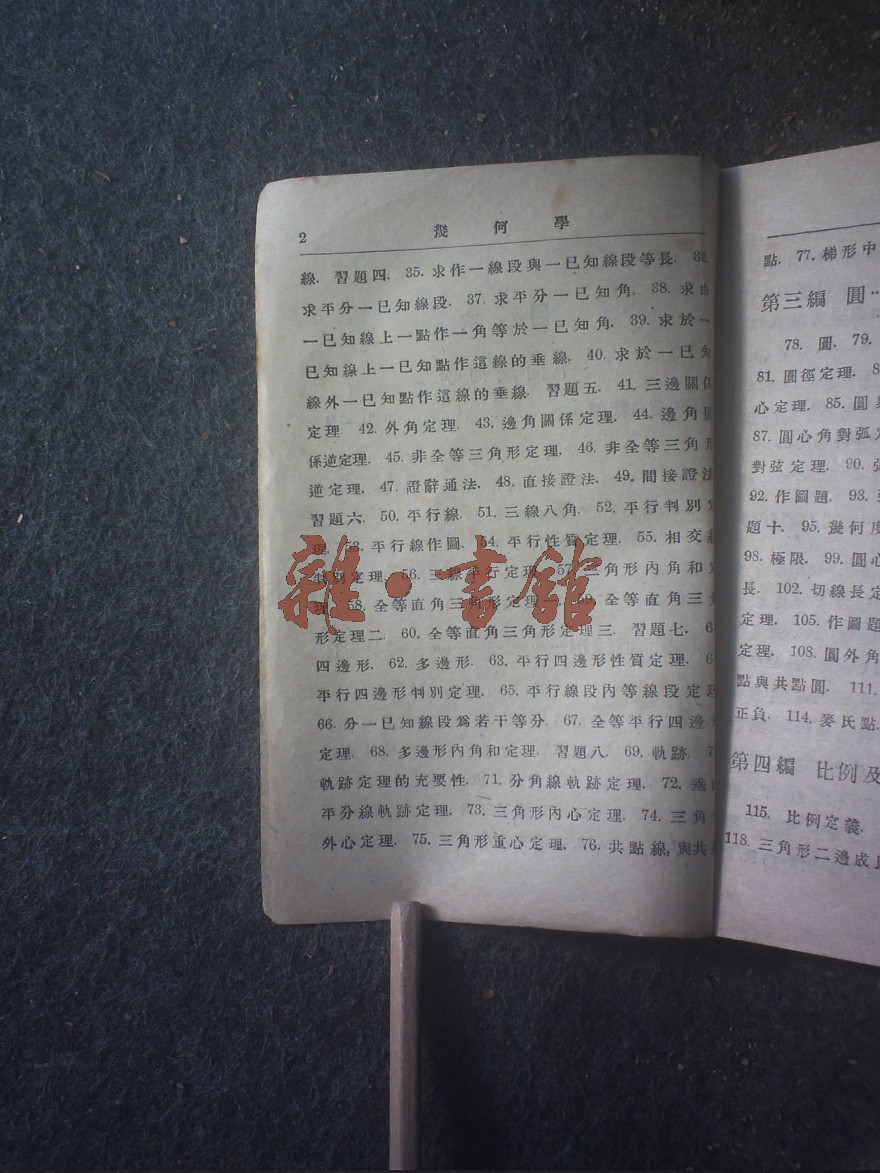 2 幾何學
線. 習題四. 35. 求作一線段與一已知線段等長.
求平分一已知線段. 37. 求平分一已知角. 38. 求由
一已知線上一點作一角等於一已知角. 39. 求於一
已知線上一已知點作這線的垂線. 40. 求於一已知
線外一已知點作這線的垂線. 習題五. 41. 三邊關係
定理. 42. 外角定理. 43. 邊角關係定理. 44. 邊角關
係逆定理. 45. 非全等三角形定理. 46. 非全等三角形
逆定理. 47. 證辭通法. 48. 直接證法. 49. 間接證法
習題六. 50. 平行線. 51. 三線八角. 52. 平行判別定
理. 53. 平行線作圖. 54. 平行性質定理. 55. 相交線
判別定理. 56. 三線平行定理. 57. 三角形內角和定
理. 58. 全等直角三角形定理一. 59. 全等直角三角
形定理二. 60. 全等直角三角形定理三. 習題七.
四邊形. 62. 多邊形. 63. 平行四邊形性質定理.
平行四邊形判別定理. 65. 平行線段內等線段定理
66. 分一已知線段爲若干等分. 67. 全等平行四邊形
定理. 68. 多邊形內角和定理. 習題八. 69. 軌跡.
軌跡定理的充要性. 71. 分角線軌跡定理. 72. 垂直
平分線軌跡定理. 73. 三角形內心定理. 74. 三角形
外心定理. 75. 三角形重心定理. 76. 共點線, 與共
點. 77. 梯形中
第三編 圓
78. 圓. 79.
81. 圓徑定理.
心定理. 85. 圓
87. 圓心角對弧
對弦定理. 90.
92. 作圖題. 93.
題十. 95. 幾何度
98. 極限. 99. 圓心
長. 102. 切線長定
定理. 105. 作圖題
定理. 108. 圓外角
點與共點圓. 111.
正負. 114. 麥氏點.
第四編 比例及
115. 比例定義.
118. 三角形二邊成
雜·書館